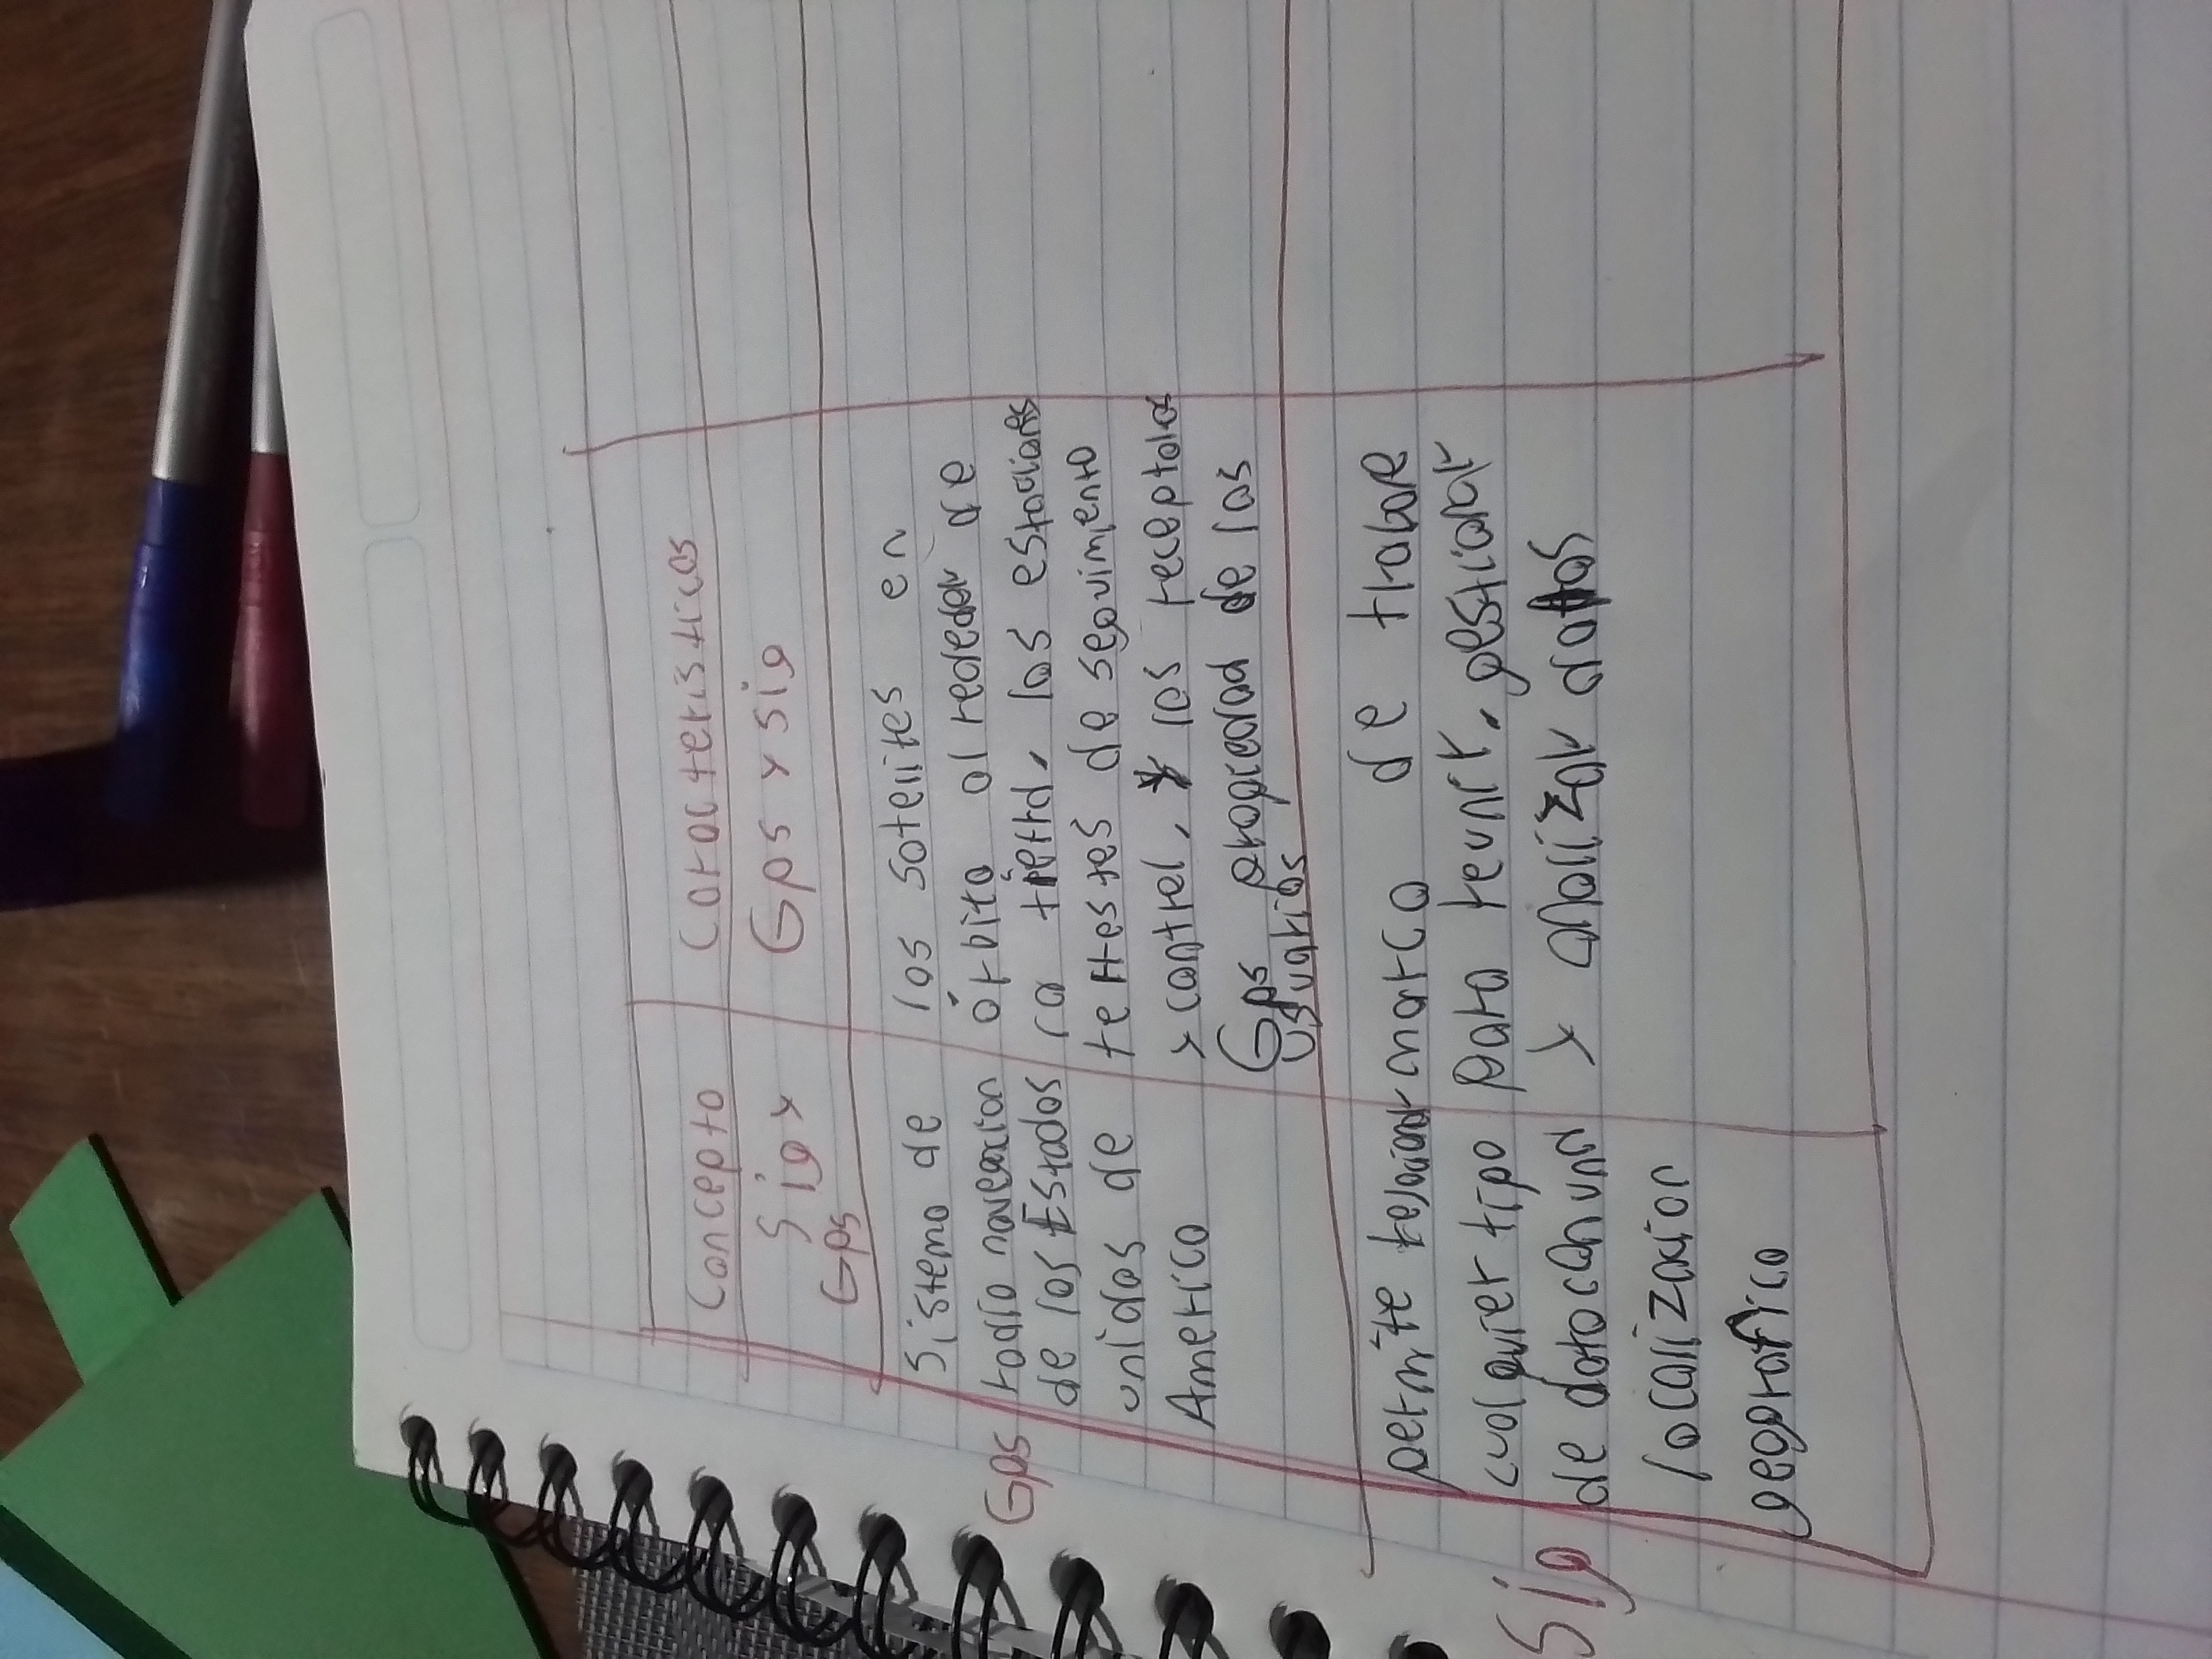 Concepto
Sig y
Gps
Caracteristicas
Gps y sig
Gps
Sistema de
radio navegacion
de los Estados
unidos de
America
los satelites en
órbita al rededor de
la tierra, las estaciones
terrestres de seguimiento
y control, y los receptores
Gps propiedad de los
usuarios
Sig
permite relacionar
cualquier tipo
de dato con una
localizacion
geografica
marco de trabajo
para reunir, gestionar
y analizar datos